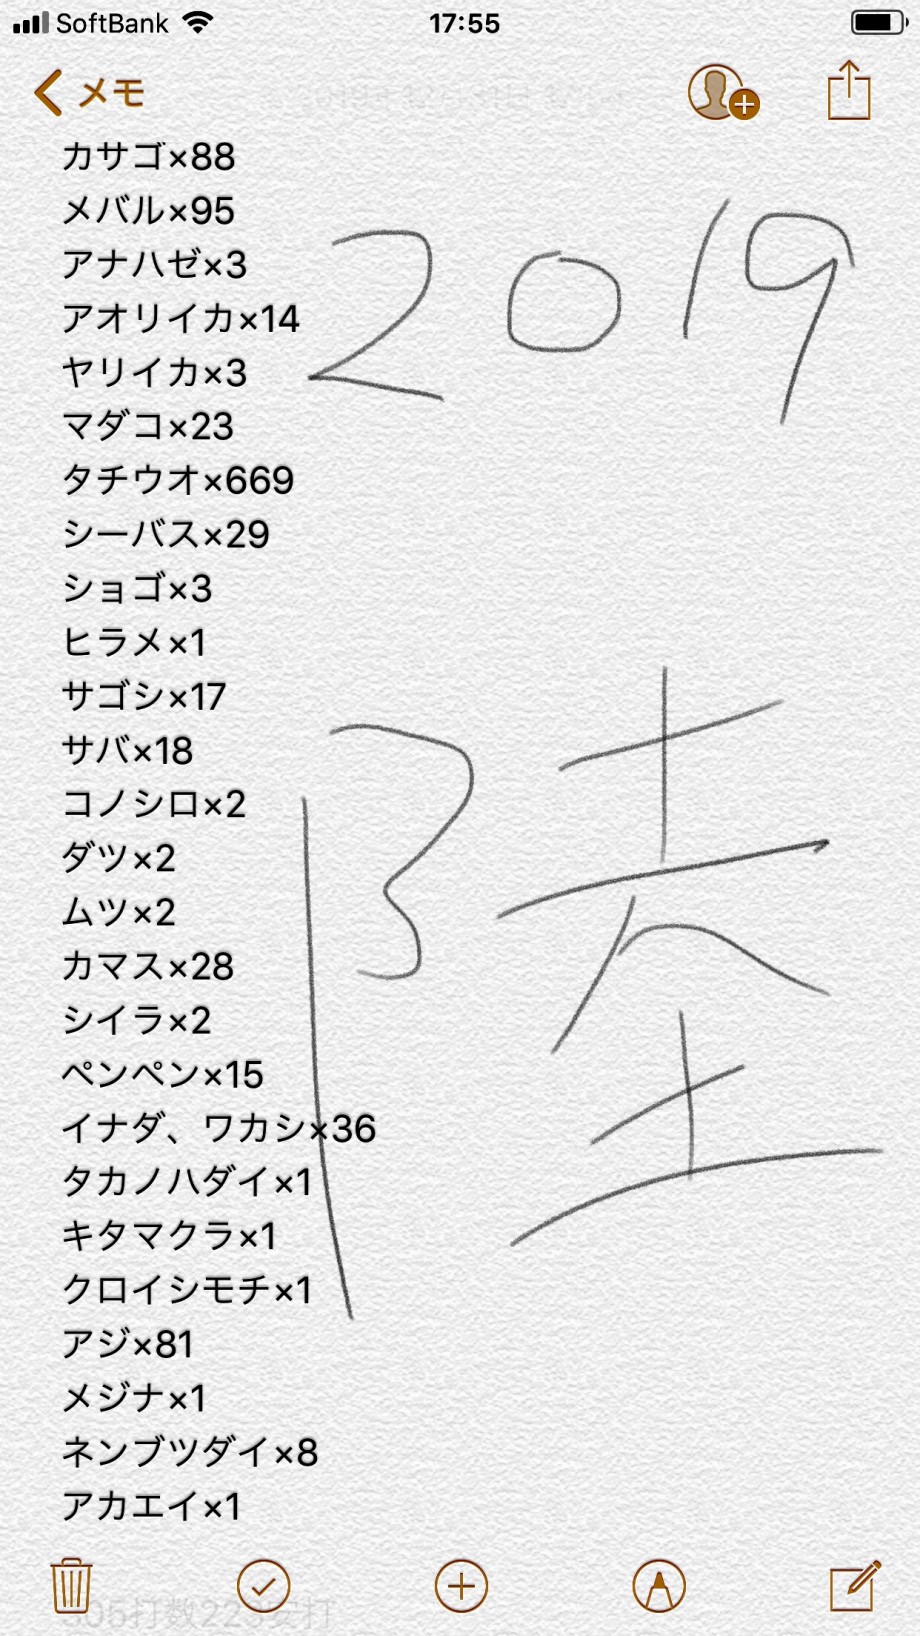 SoftBank 17:55
メモ
カサゴ×88
メバル×95
アナハゼ×3
アオリイカ×14
ヤリイカ×3
マダコ×23
タチウオ×669
シーバス×29
ショゴ×3
ヒラメ×1
サゴシ×17
サバ×18
コノシロ×2
ダツ×2
ムツ×2
カマス×28
シイラ×2
ペンペン×15
イナダ、ワカシ×36
タカノハダイ×1
キタマクラ×1
クロイシモチ×1
アジ×81
メジナ×1
ネンブツダイ×8
アカエイ×1
2019
陸